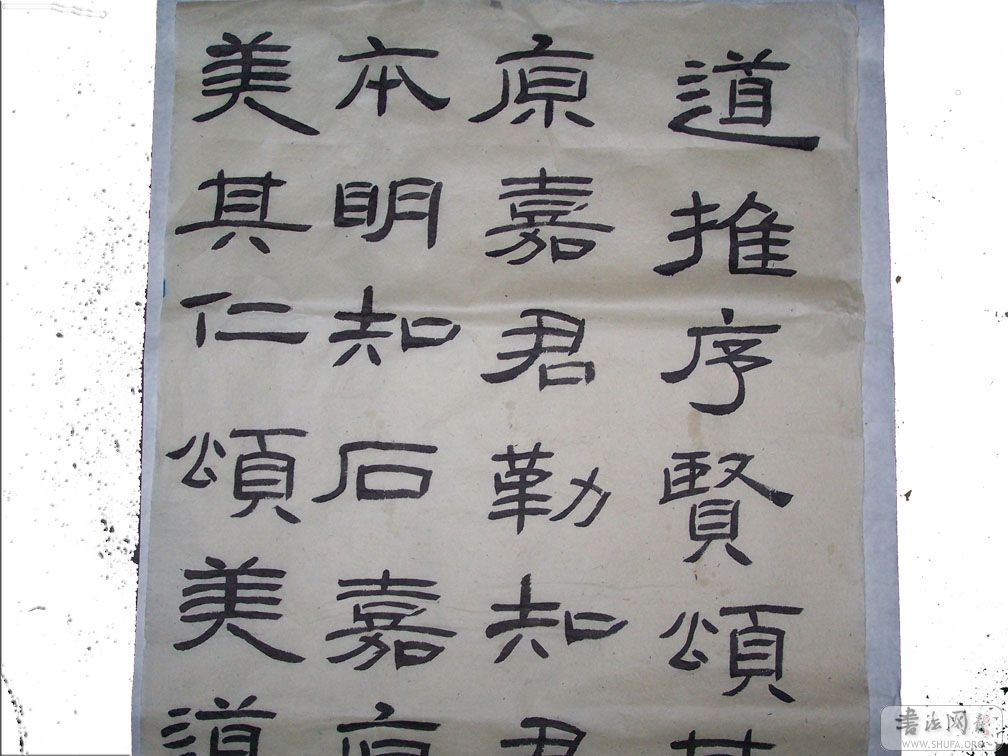 道推序賢頌其
原嘉君勤知君
本明知石嘉原
美其仁頌美道
书法网
WWW.SHUFA.ORG